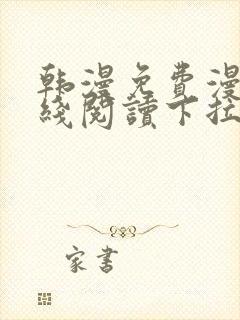 韩漫免费漫
线阅读下拉
家書